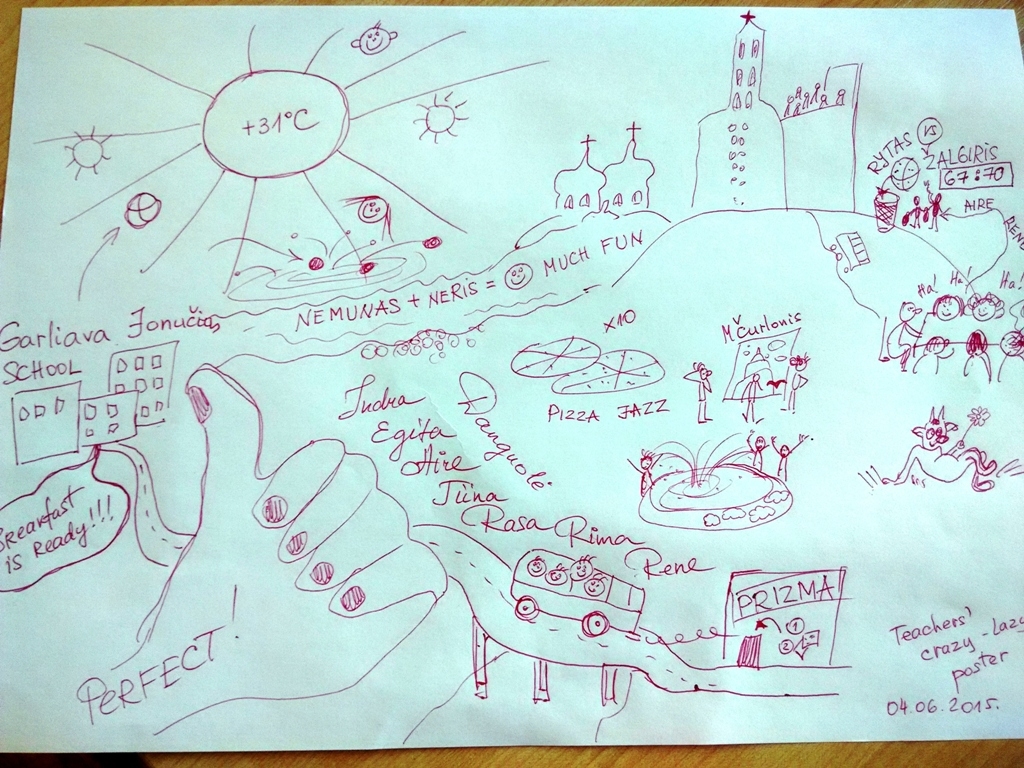 +31°C
RYTAS VS
ŽALGIRIS
67:70
AIRE
RENE
NEMUNAS + NERIS = MUCH FUN
Ha! Ha! Ha!
Garliava Jonučių
SCHOOL
Breakfast
is Ready!!!
x10
PIZZA JAZZ
M Čurlonis
Indra
Egita
Aire
Tiina
Rasa Rima
Rene
Danguolė
PERFECT!
PRIZMA
1
2
Teachers'
crazy-lazy
poster
04.06.2015.